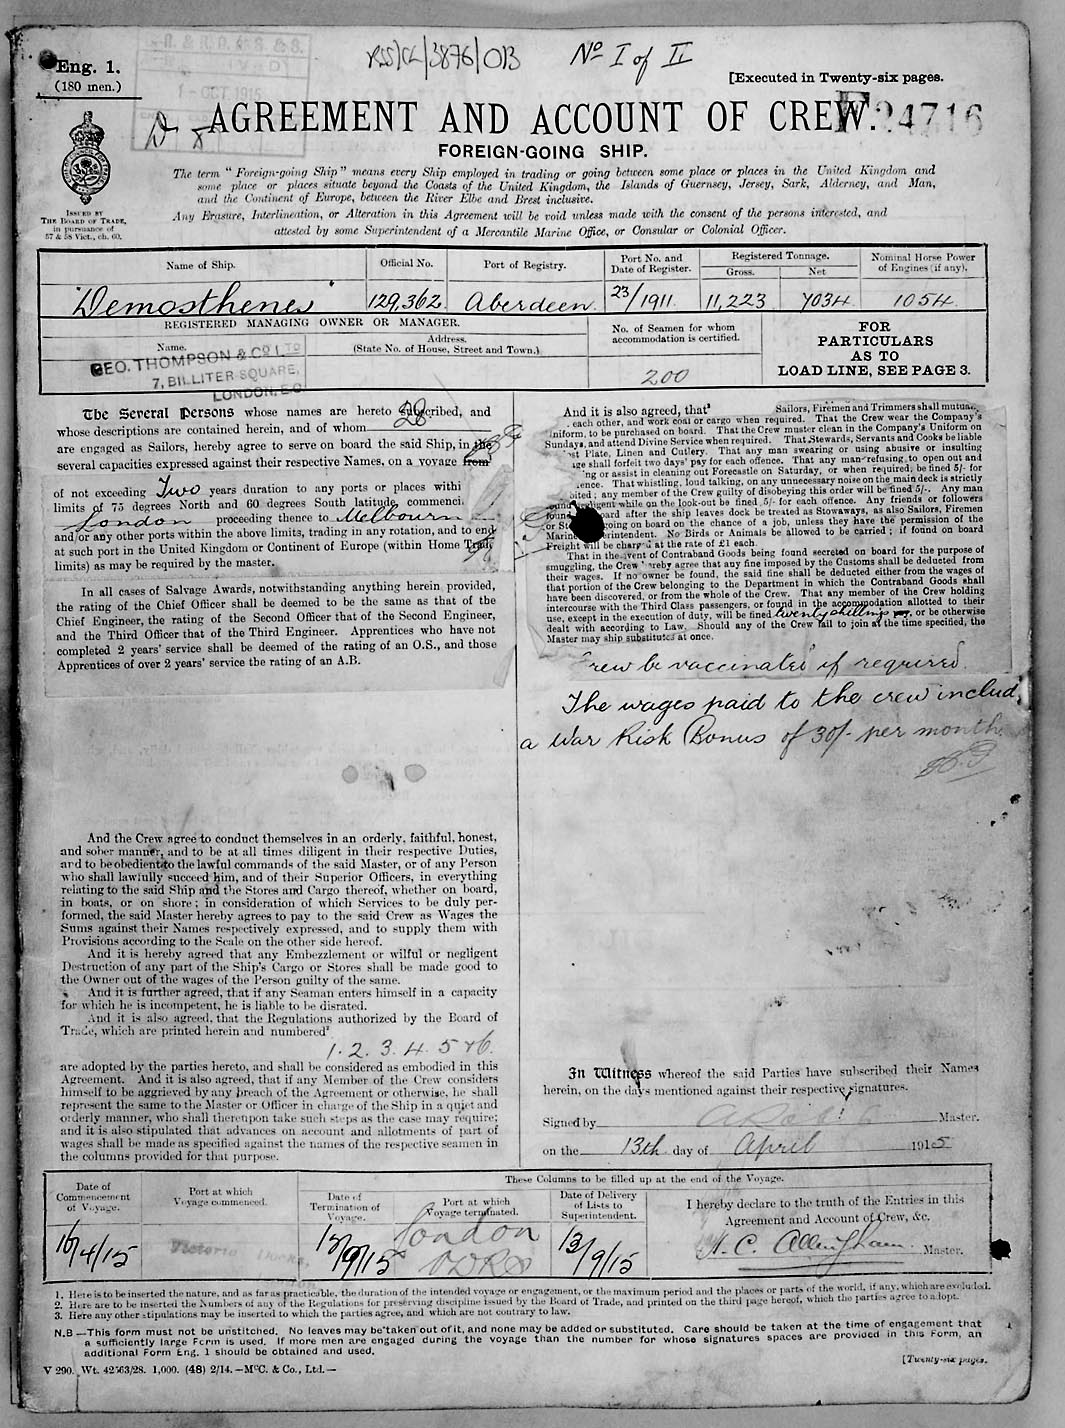 RSS/CL/3876/013 No I of II
Eng. 1.
(180 men.)
[Executed in Twenty-six pages.
1 - OCT 1915
AGREEMENT AND ACCOUNT OF CREW.
24716
FOREIGN-GOING SHIP.
The term “Foreign-going Ship” means every Ship employed in trading or going between some place or places in the United Kingdom and
some place or places situate beyond the Coasts of the United Kingdom, the Islands of Guernsey, Jersey, Sark, Alderney, and Man,
and the Continent of Europe, between the River Elbe and Brest inclusive.
Any Erasure, Interlineation, or Alteration in this Agreement will be void unless made with the consent of the persons interested, and
attested by some Superintendent of a Mercantile Marine Office, or Consular or Colonial Officer.
ISSUED BY
THE BOARD OF TRADE,
in pursuance of
57 & 58 Vict., ch. 60.
Name of Ship. Official No. Port of Registry. Port No. and Date of Register. Registered Tonnage. Gross. Net Nominal Horse Power of Engines (if any).
"Demosthenes" 129,362 Aberdeen 23/1911 11,223 7034 1054
REGISTERED MANAGING OWNER OR MANAGER.
Name. Address.
(State No. of House, Street and Town.)
GEO. THOMPSON & CO LTD
7, BILLITER SQUARE,
LONDON, E.C.
No. of Seamen for whom
accommodation is certified.
200
FOR
PARTICULARS
AS TO
LOAD LINE, SEE PAGE 3.
The Several Persons whose names are hereto subscribed, and
whose descriptions are contained herein, and of whom 28
are engaged as Sailors, hereby agree to serve on board the said Ship, in the
several capacities expressed against their respective Names, on a voyage from
of not exceeding Two years duration to any ports or places withi
limits of 75 degrees North and 60 degrees South latitude, commenci
London proceeding thence to Melbourn
and/or any other ports within the above limits, trading in any rotation, and to end
at such port in the United Kingdom or Continent of Europe (within Home Trade
limits) as may be required by the master.
In all cases of Salvage Awards, notwithstanding anything herein provided,
the rating of the Chief Officer shall be deemed to be the same as that of the
Chief Engineer, the rating of the Second Officer that of the Second Engineer,
and the Third Officer that of the Third Engineer. Apprentices who have not
completed 2 years' service shall be deemed of the rating of an O.S., and those
Apprentices of over 2 years' service the rating of an A.B.
And the Crew agree to conduct themselves in an orderly, faithful, honest,
and sober manner, and to be at all times diligent in their respective Duties,
and to be obedient to the lawful commands of the said Master, or of any Person
who shall lawfully succeed him, and of their Superior Officers, in everything
relating to the said Ship and the Stores and Cargo thereof, whether on board,
in boats, or on shore; in consideration of which Services to be duly per-
formed, the said Master hereby agrees to pay to the said Crew as Wages the
Sums against their Names respectively expressed, and to supply them with
Provisions according to the Scale on the other side hereof.
And it is hereby agreed that any Embezzlement or wilful or negligent
Destruction of any part of the Ship's Cargo or Stores shall be made good to
the Owner out of the wages of the Person guilty of the same.
And it is further agreed, that if any Seaman enters himself in a capacity
for which he is incompetent, he is liable to be disrated.
And it is also agreed, that the Regulations authorized by the Board of
Trade, which are printed herein and numbered²
1. 2. 3. 4. 5 & 6.
are adopted by the parties hereto, and shall be considered as embodied in this
Agreement. And it is also agreed, that if any Member of the Crew considers
himself to be aggrieved by any breach of the Agreement or otherwise, he shall
represent the same to the Master or Officer in charge of the Ship in a quiet and
orderly manner, who shall thereupon take such steps as the case may require;
and it is also stipulated that advances on account and allotments of part of
wages shall be made as specified against the names of the respective seamen in
the columns provided for that purpose.
And it is also agreed, that³ Sailors, Firemen and Trimmers shall mutua
each other, and work coal or cargo when required. That the Crew wear the Company's
Uniform, to be purchased on board. That the Crew muster clean in the Company's Uniform on
Sundays, and attend Divine Service when required. That Stewards, Servants and Cooks be liable
st Plate, Linen and Cutlery. That any man swearing or using abusive or insulting
age shall forfeit two days' pay for each offence. That any man refusing to open out and
ing or assist in cleaning out Forecastle on Saturday, or when required, be fined 5/- for
ence. That whistling, loud talking, on any unnecessary noise on the main deck is strictly
bited; any member of the Crew guilty of disobeying this order will be fined 5/-. Any man
found negligent while on the look-out be fined 5/- for each offence. Any friends or followers
found board after the ship leaves dock be treated as Stowaways, as also Sailors, Firemen
or St going on board on the chance of a job, unless they have the permission of the
Marine erintendent. No Birds or Animals be allowed to be carried; if found on board
Freight will be charged at the rate of £1 each.
That in the event of Contraband Goods being found secreted on board for the purpose of
smuggling, the Crew hereby agree that any fine imposed by the Customs shall be deducted from
their wages. If no owner be found, the said fine shall be deducted either from the wages of
that portion of the Crew belonging to the Department in which the Contraband Goods shall
have been discovered, or from the whole of the Crew. That any member of the Crew holding
intercourse with the Third Class passengers, or found in the accommodation allotted to their
use, except in the execution of duty, will be fined twenty shillings, or be otherwise
dealt with according to Law. Should any of the Crew fail to join at the time specified, the
Master may ship substitutes at once.
rew be vaccinated if required.
The wages paid to the crew includ
a War Risk Bonus of 30/- per month.
In Witness whereof the said Parties have subscribed their Names
herein, on the days mentioned against their respective signatures.
Signed by Master.
on the 13th day of April 1915
These Columns to be filled up at the end of the Voyage.
Date of Commencement of Voyage. Port at which Voyage commenced. Date of Termination of Voyage. Port at which Voyage terminated. Date of Delivery of Lists to Superintendent.
I hereby declare to the truth of the Entries in this
Agreement and Account of Crew, &c.
16/4/15 Victoria Docks, London 12/9/15 London 13/9/15
A. C. Allingham Master.
1. Here is to be inserted the nature, and as far as practicable, the duration of the intended voyage or engagement, or the maximum period and the places or parts of the world, if any, which are excluded.
2. Here are to be inserted the Numbers of any of the Regulations for preserving discipline issued by the Board of Trade, and printed on the third page hereof, which the parties agree to adopt.
3. Here any other stipulations may be inserted to which the parties agree, and which are not contrary to law.
N.B—This form must not be unstitched. No leaves may be taken out of it, and none may be added or substituted. Care should be taken at the time of engagement that
a sufficiently large Form is used. If more men are engaged during the voyage than the number for whose signatures spaces are provided in this Form, an
additional Form Eng. 1 should be obtained and used.
[Twenty-six pages.
V 290. Wt. 42563/28. 1,000. (48) 2/14. —McC. & Co., Ltd.—